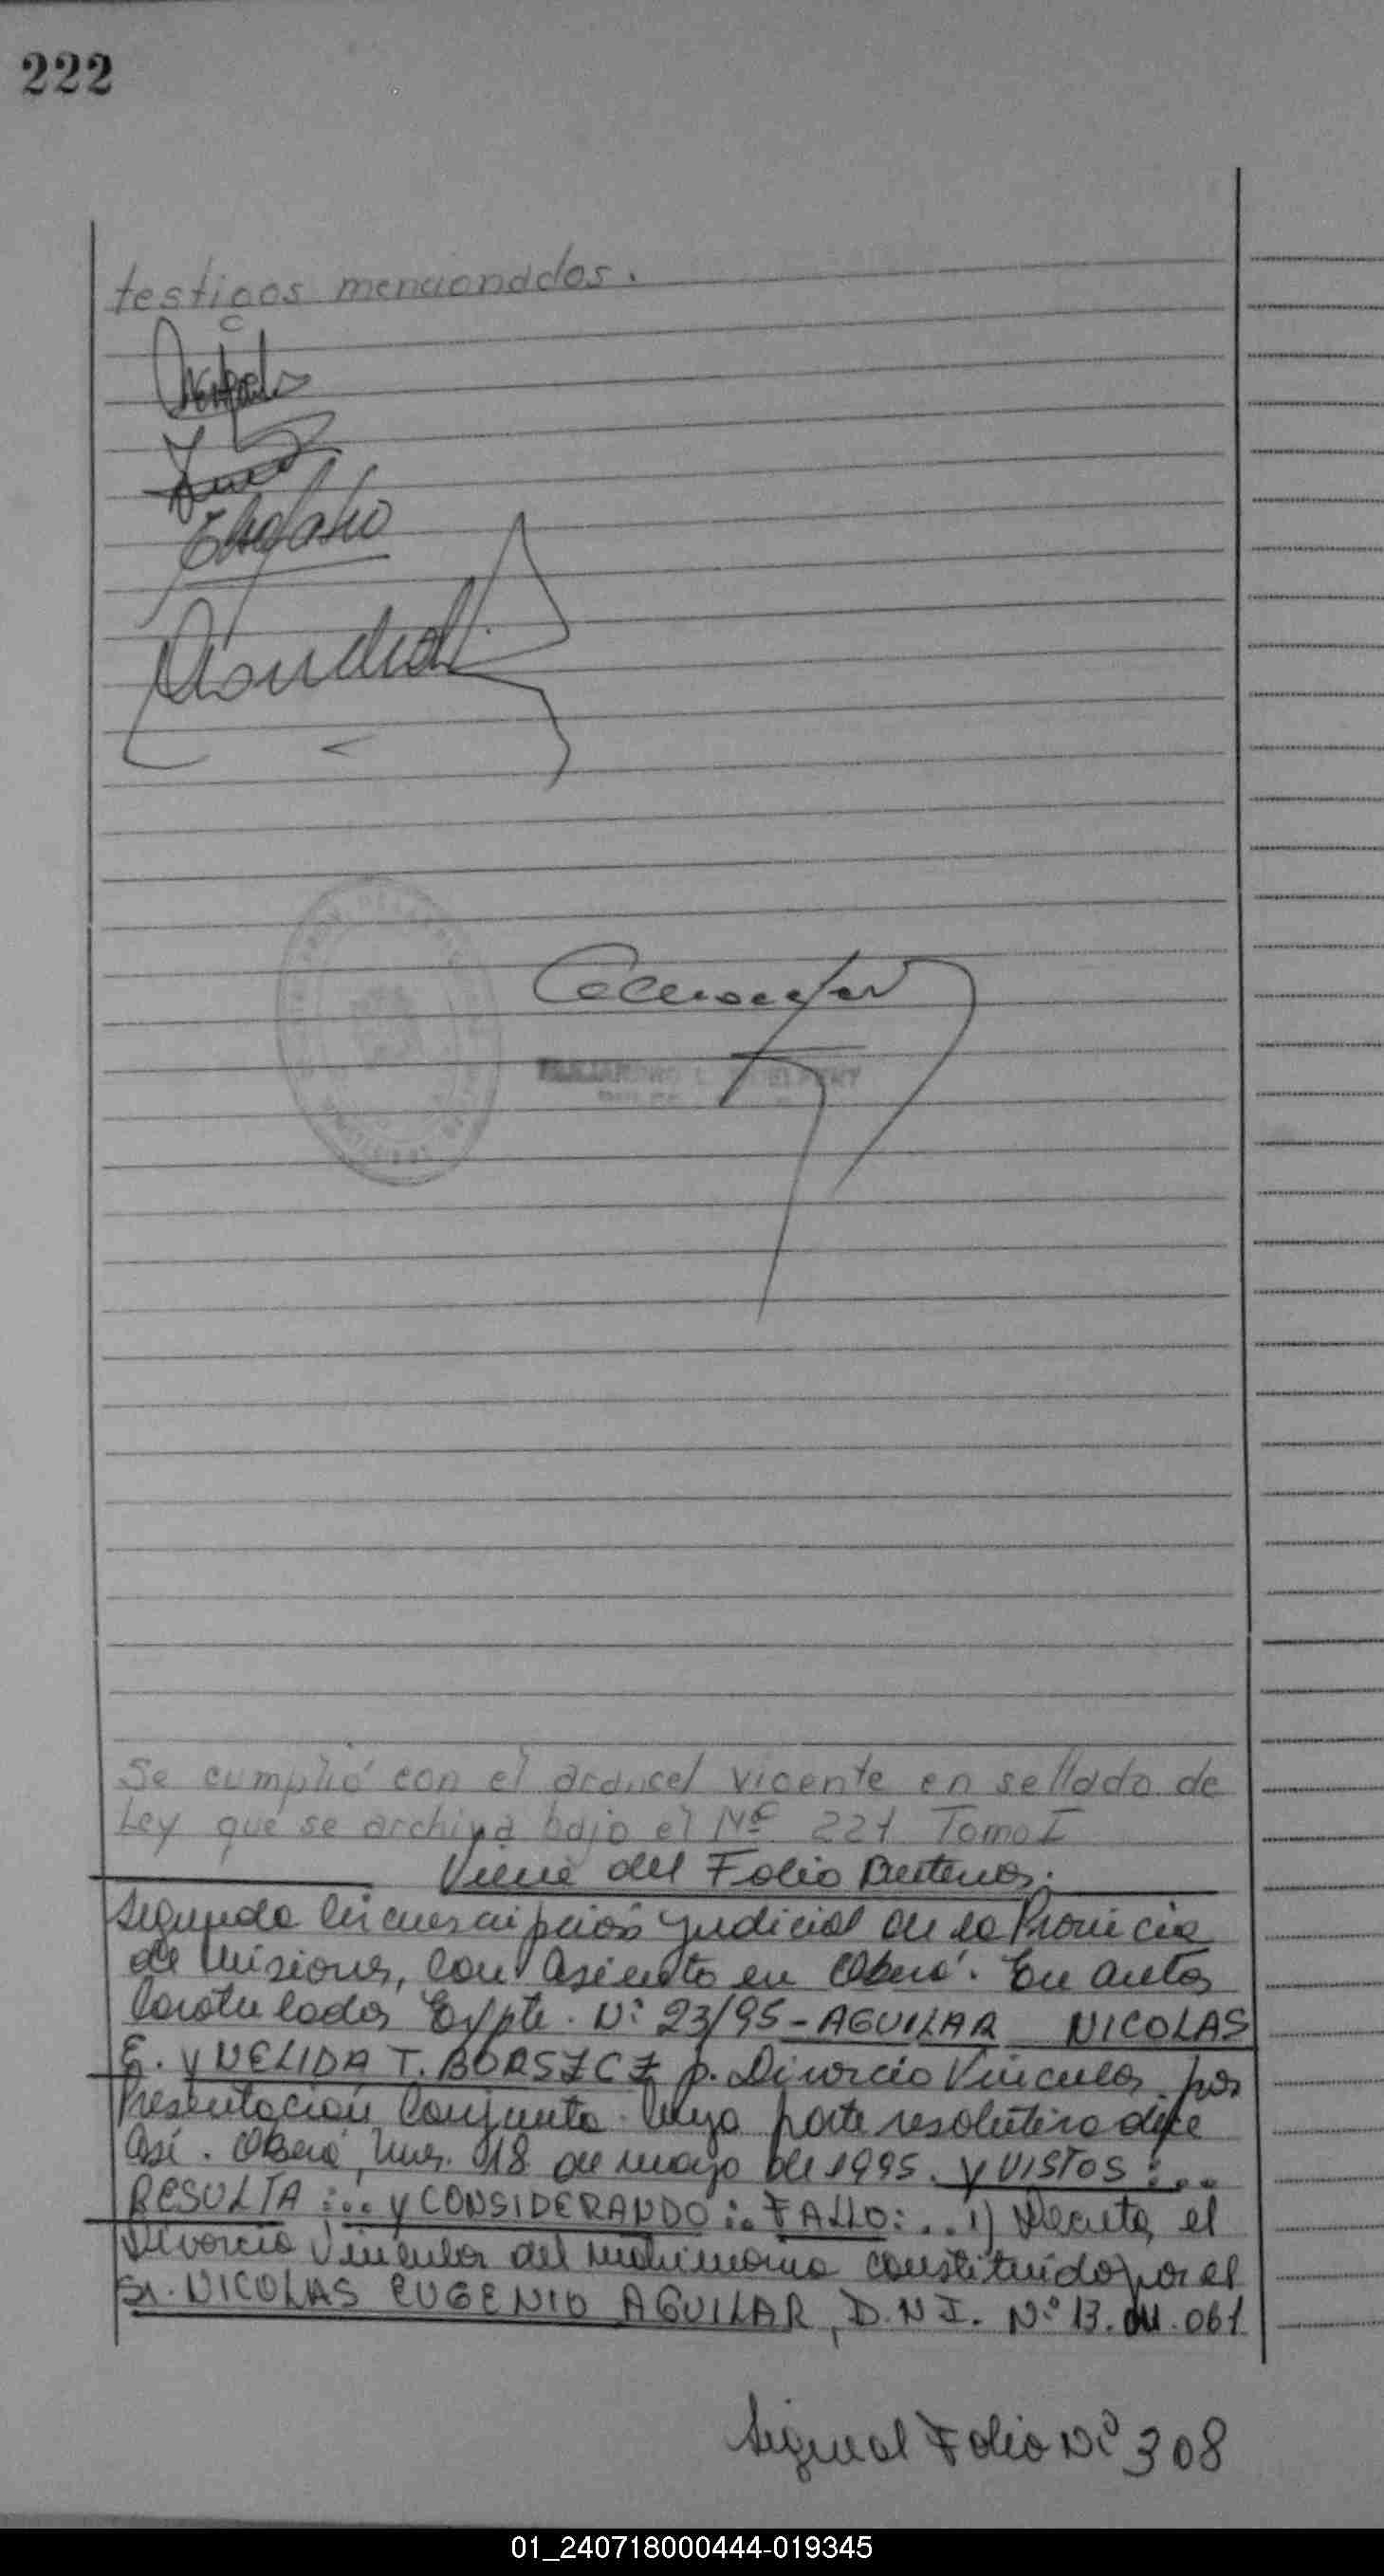 222
testigos mencionados.
Se cumplió con el arancel vigente en sellado de
Ley que se archiva bajo el Nº 221 Tomo I
Viene del Folio
Segunda Circunscripción Judicial de la Provincia
de Misiones, con asiento en Oberá. En autos
Caratulados Expte. Nº 23/95-AGUILAR NICOLAS
E. y NELIDA T. BORSZCZ p. Divorcio Vincular por
Presentación Conjunta. Cuya parte resolutiva dice
así. Oberá, Mnes. 18 de mayo de 1995. y VISTOS:...
RESULTA:... y CONSIDERANDO:.. FALLO:... 1) Decreta el
Divorcio Vincular del matrimonio constituido por el
Sr. NICOLAS EUGENIO AGUILAR, D.N.I. Nº 13. 061
Sigue al Folio Nº 308
01_240718000444-019345